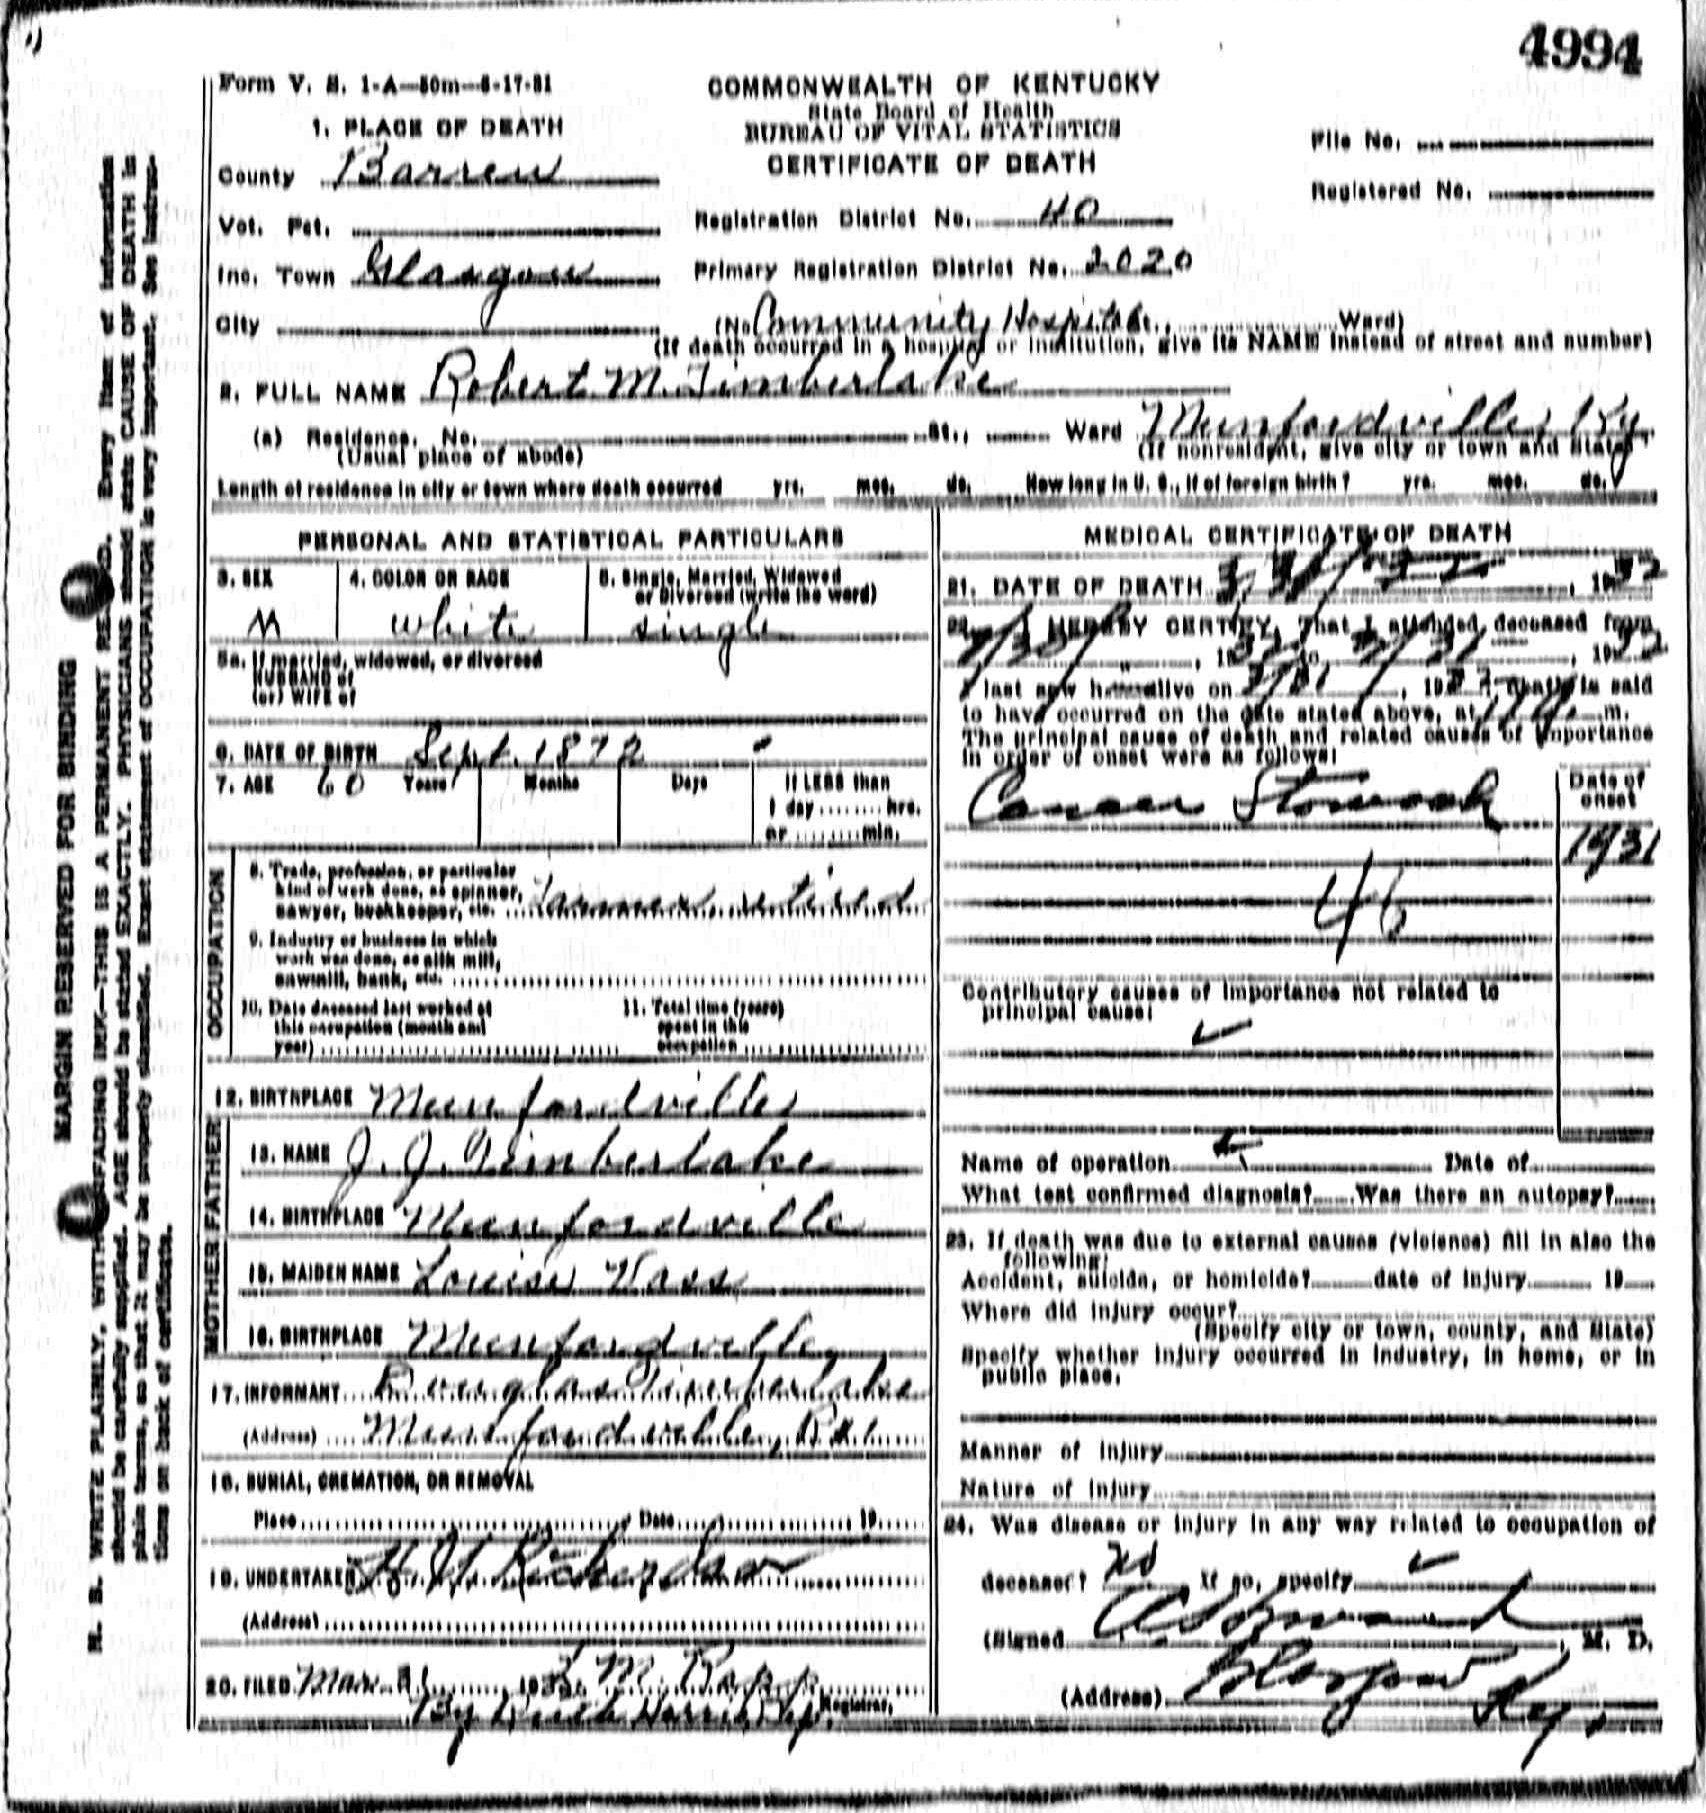 4994
Form V. S. 1-A—50m—8-17-31
COMMONWEALTH OF KENTUCKY
State Board of Health
BUREAU OF VITAL STATISTICS
CERTIFICATE OF DEATH
File No.
Registered No.
1. PLACE OF DEATH
County Barren
Vot. Pct.
Inc. Town Glasgow
City
Registration District No. 40
Primary Registration District No. 2020
(No Community Hospital St., Ward)
(If death occurred in a hospital or institution, give its NAME instead of street and number)
2. FULL NAME Robert M. Timberlake
(a) Residence. No. St., Ward Munfordville, Ky
(Usual place of abode) (If nonresident, give city or town and State)
Length of residence in city or town where death occurred yrs. mos. ds. How long in U. S., if of foreign birth? yrs. mos. ds.
PERSONAL AND STATISTICAL PARTICULARS
3. SEX
M
4. COLOR OR RACE
white
5. Single, Married, Widowed
or Divorced (write the word)
single
5a. If married, widowed, or divorced
HUSBAND of
(or) WIFE of
6. DATE OF BIRTH Sept. 1872
7. AGE 60 Years Months Days
If LESS than
1 day ........ hrs.
or ........ min.
OCCUPATION
8. Trade, profession, or particular
kind of work done, as spinner,
sawyer, bookkeeper, etc. Farmer, retired
9. Industry or business in which
work was done, as silk mill,
sawmill, bank, etc.
10. Date deceased last worked at
this occupation (month and
year)
11. Total time (years)
spent in this
occupation
12. BIRTHPLACE Munfordville
FATHER
13. NAME J. J. Timberlake
14. BIRTHPLACE Munfordville
MOTHER
15. MAIDEN NAME Louise Vass
16. BIRTHPLACE Munfordville
17. INFORMANT Douglas Timberlake
(Address) Munfordville,
18. BURIAL, CREMATION, OR REMOVAL
Place Date 19
19. UNDERTAKER Richardson
(Address)
20. FILED Mar 31 193 M. Rapp
By Harris Registrar.
MEDICAL CERTIFICATE OF DEATH
21. DATE OF DEATH 3, 31/32, 1932
22. I HEREBY CERTIFY, That I attended deceased from
, 19 to 3/31, 1932
I last saw h alive on 3/31, 193 , death is said
to have occurred on the date stated above, at m.
The principal cause of death and related causes of importance
in order of onset were as follows:
Date of
onset
Cancer Stomach
1931
46
Contributory causes of importance not related to
principal cause:
Name of operation Date of
What test confirmed diagnosis? Was there an autopsy?
23. If death was due to external causes (violence) fill in also the
following:
Accident, suicide, or homicide? date of injury 19
Where did injury occur?
(Specify city or town, county, and State)
Specify whether injury occurred in industry, in home, or in
public place.
Manner of injury
Nature of injury
24. Was disease or injury in any way related to occupation of
deceased? no If so, specify
(Signed , M. D.
(Address) Glasgow Ky.
MARGIN RESERVED FOR BINDING
N. B. WRITE PLAINLY, WITH UNFADING INK—THIS IS A PERMANENT RECORD. Every item of information
should be carefully supplied. AGE should be stated EXACTLY. PHYSICIANS should state CAUSE OF DEATH in
plain terms, so that it may be properly classified. Exact statement of OCCUPATION is very important. See instruc-
tions on back of certificate.